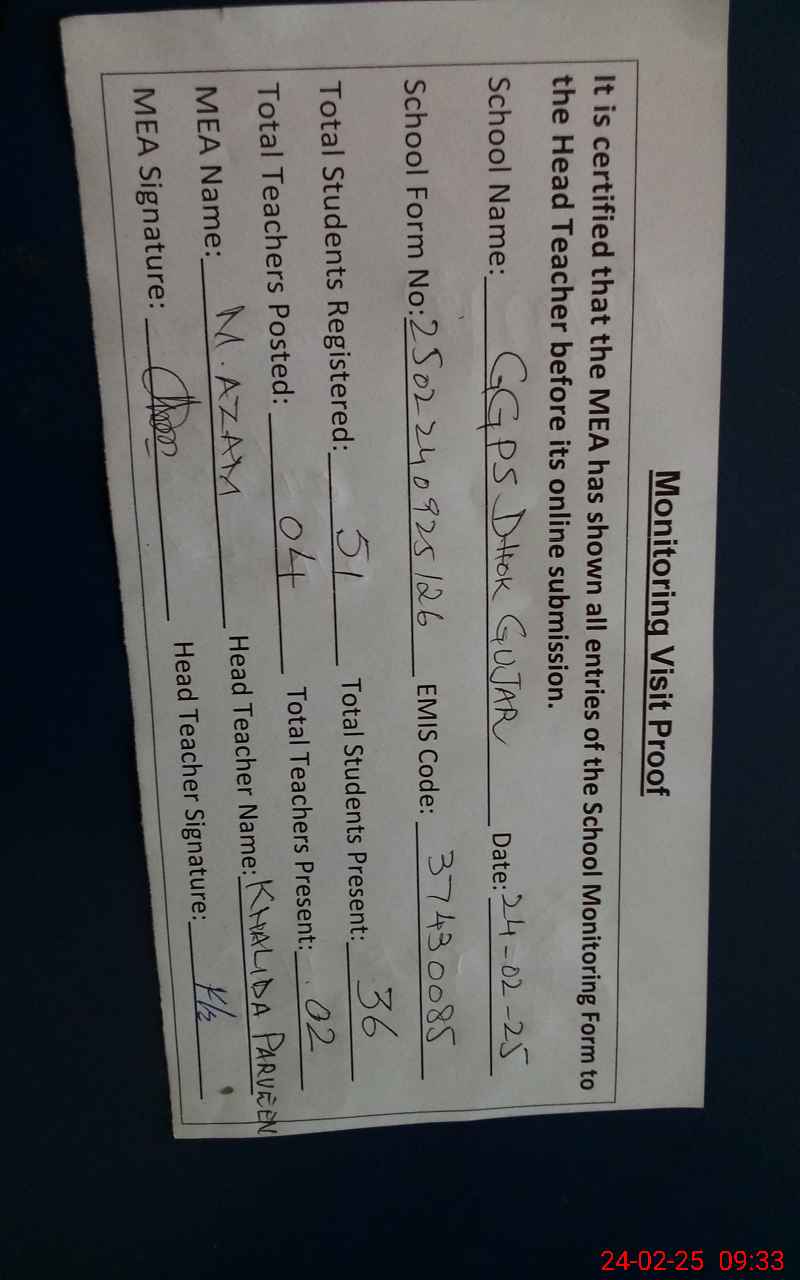 Monitoring Visit Proof
It is certified that the MEA has shown all entries of the School Monitoring Form to
the Head Teacher before its online submission.
School Name: GGPS DHOK GUJAR Date: 24-02-25
School Form No: 250224092526 EMIS Code: 37430085
Total Students Registered: 51 Total Students Present: 36
Total Teachers Posted: 04 Total Teachers Present: 02
MEA Name: M. AZAM Head Teacher Name: KHALIDA PARVEEN
MEA Signature: Head Teacher Signature:
24-02-25 09:33